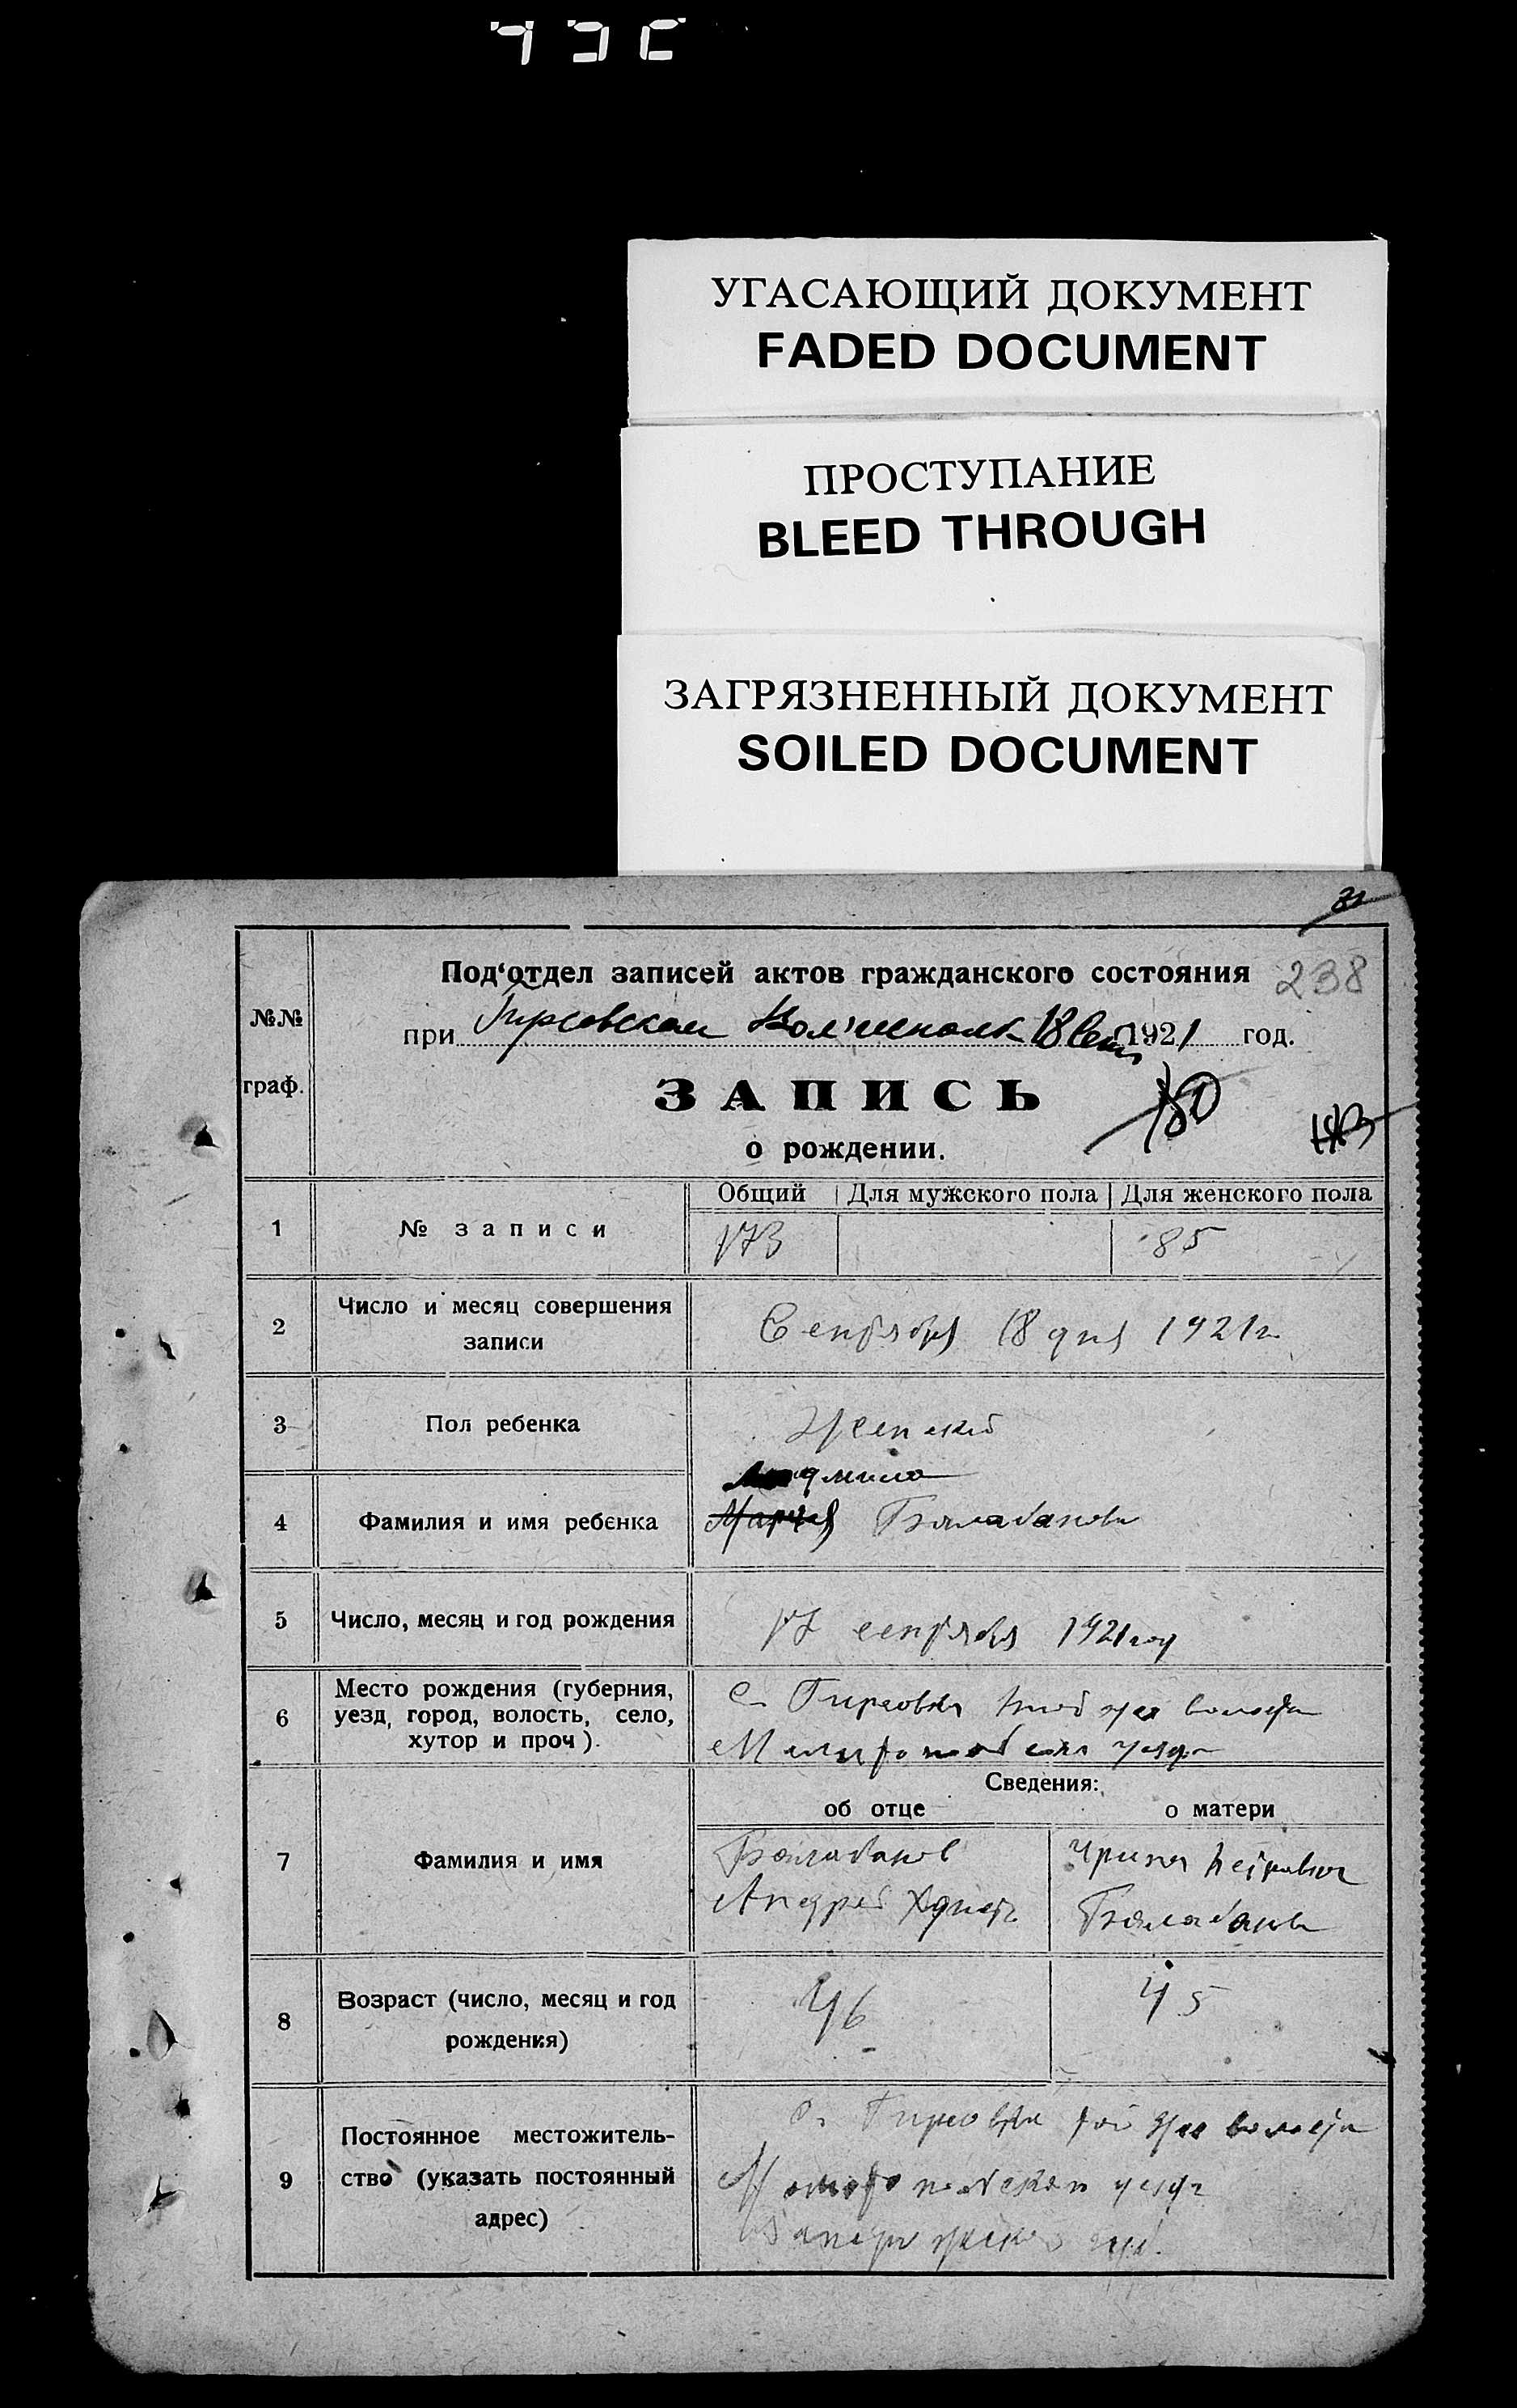 УГАСАЮЩИЙ ДОКУМЕНТ
FADED DOCUMENT
ПРОСТУПАНИЕ
BLEED THROUGH
ЗАГРЯЗНЕННЫЙ ДОКУМЕНТ
SOILED DOCUMENT
31
Под‘отдел записей актов гражданского состояния 238
№№ при Гирсовском 18 Сент 1921 год.
граф.
ЗАПИСЬ
о рождении.
Общий Для мужского пола Для женского пола
1 № записи 173 85
2 Число и месяц совершения записи
Сентября 18 дня 1921 г
3 Пол ребенка Женский
Людмила
4 Фамилия и имя ребенка Мария Балабанова
5 Число, месяц и год рождения 17 сентября 1921 год
6 Место рождения (губерния, уезд, город, волость, село, хутор и проч).
С. Гирсовка
Мелитопольского уезда
Сведения:
об отце о матери
7 Фамилия и имя
Балабанов Ирина Петровна
Андрей Балабанова
8 Возраст (число, месяц и год рождения)
46 45
9 Постоянное местожительство (указать постоянный адрес)
с. Гирсовка
Мелитопольского уезда
губ.